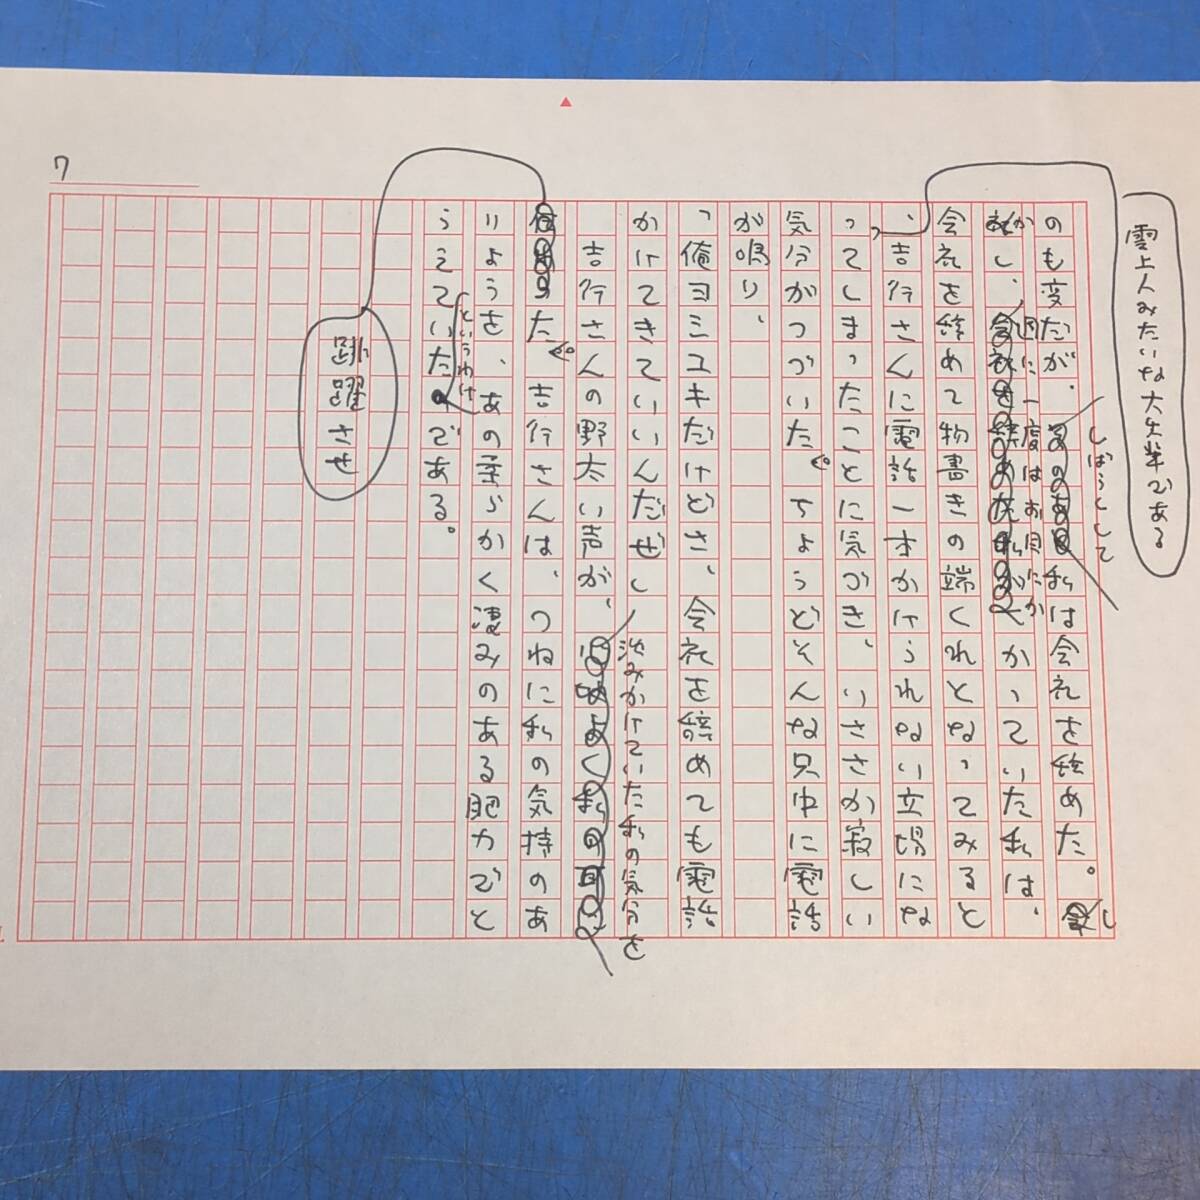 7
雲上人みたいな大先輩である
しばらくして
のも変だが、私は会社を辞めた。し
かし、週に一度はお目にか
かっていた私は、
会社を辞めて物書きの端くれとなってみると
、吉行さんに電話一本かけられない立場にな
ってしまったことに気づき、いささか寂しい
気分がつづいた。ちょうどそんな只中に電話
が鳴り、
「俺ヨシユキだけどさ、会社を辞めても電話
かけてきていいんだぜ」
沈みかけていた私の気分を
吉行さんの野太い声が、
跳躍させ
た。吉行さんは、つねに私の気持のあ
りようを、あの柔らかく凄みのある肥力でと
というわけ
らえていたのである。